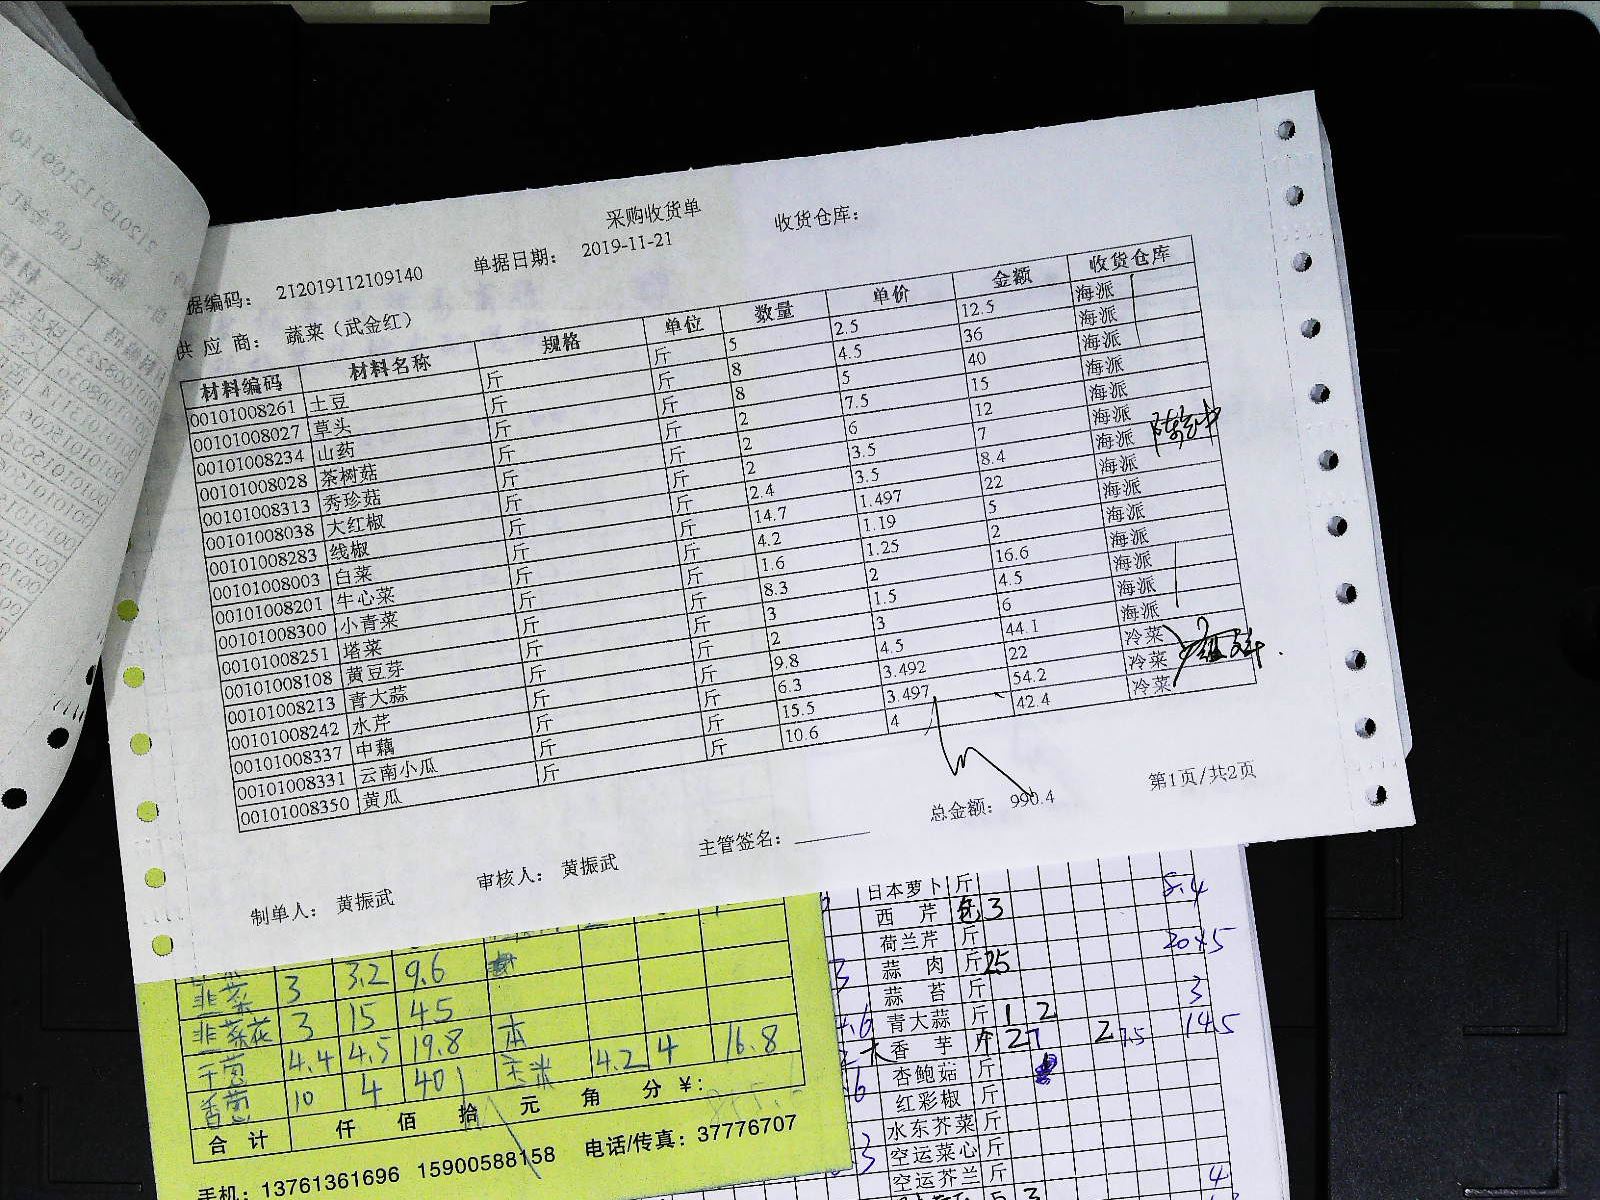 采购收货单
据编码： 212019112109140 单据日期： 2019-11-21 收货仓库：
供 应 商： 蔬菜（武金红）
材料编码 材料名称 规格 单位 数量 单价 金额 收货仓库
00101008261 土豆 斤 斤 5 2.5 12.5 海派
00101008027 草头 斤 斤 8 4.5 36 海派
00101008234 山药 斤 斤 8 5 40 海派
00101008028 茶树菇 斤 斤 2 7.5 15 海派
00101008313 秀珍菇 斤 斤 2 6 12 海派
00101008038 大红椒 斤 斤 2 3.5 7 海派
00101008283 线椒 斤 斤 2.4 3.5 8.4 海派
00101008003 白菜 斤 斤 14.7 1.497 22 海派
00101008201 牛心菜 斤 斤 4.2 1.19 5 海派
00101008300 小青菜 斤 斤 1.6 1.25 2 海派
00101008251 塔菜 斤 斤 8.3 2 16.6 海派
00101008108 黄豆芽 斤 斤 3 1.5 4.5 海派
00101008213 青大蒜 斤 斤 2 3 6 海派
00101008242 水芹 斤 斤 9.8 4.5 44.1 海派
00101008337 中藕 斤 斤 6.3 3.492 22 冷菜
00101008331 云南小瓜 斤 斤 15.5 3.497 54.2 冷菜
00101008350 黄瓜 斤 斤 10.6 4 42.4 冷菜
总金额： 990.4 第1页/共2页
制单人： 黄振武 审核人： 黄振武 主管签名：
韭菜 3 3.2 9.6
韭菜花 3 15 45
干葱 4.4 4.5 19.8 玉米 4.2 4 16.8
香葱 10 4 40
合 计 仟 佰 拾 元 角 分 ¥:
手机：13761361696 15900588158 电话/传真：37776707
日本萝卜 斤 8.4
西 芹 3
荷兰芹 斤 20.45
蒜 肉 斤 25
蒜 苔 斤 3
青大蒜 斤 1 2 14.5
香 芋 斤
杏鲍菇 斤
红彩椒 斤
水东芥菜 斤
空运菜心 斤
空运芥兰 斤 4